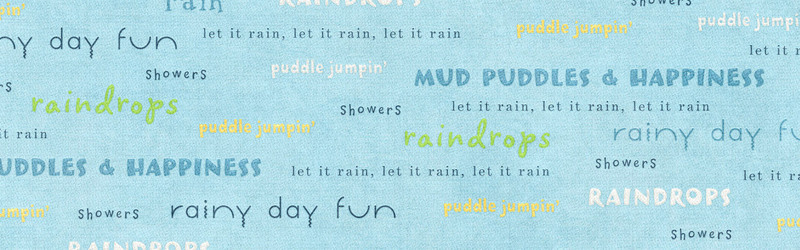 rain
RAINDROPS
showers
jumpin'
puddle jumpin'
puddle jumpin'
ny day fun
let it rain, let it rain, let it rain
let it r
showers
puddle jumpin'
MUD PUDDLES & HAPPINESS
rs
raindrops
showers
let it rain, let it rain, let it rain
it rain
puddle jumpin'
raindrops
rainy day fu
UDDLES & HAPPINESS
let it rain, let it rain, let it rain
showers
let it ra
umpin'
showers
rainy day fun
puddle jumpin'
RAINDROPS
pu
showers
RAINDROPS